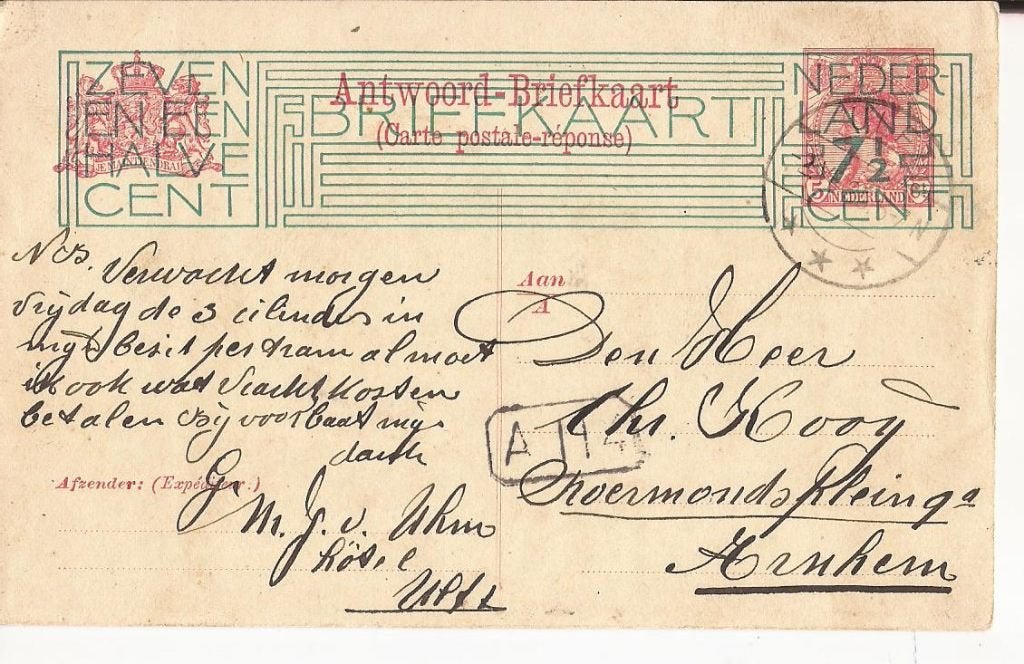 ZEVEN
EN EEN
HALVE
CENT
JE MAINTIENDRAI
Antwoord-Briefkaart
BRIEFKAART
(Carte postale-réponse)
NEDER-
LAND
7½
CENT
5 NEDERLAND
NB. Verwacht morgen
Vrijdag de 3 cilinders in
mijn besit per tram al moet
ik ook wat Vracht Kosten
betalen bij voorbaat mijn
dank
Afzender: (Expéditeur.)
G. M. J. v. Uhm
Hotel
Ulft
Aan
A
Den Heer
Chr. Kooy
A 14
Roermondsplein 9a
Arnhem